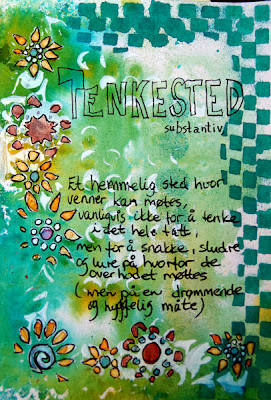 TENKESTED
substantiv
Et hemmelig sted hvor
venner kan møtes,
vanligvis ikke for å tenke
i det hele tatt,
men for å snakke, sludre
og lure på hvorfor de
overhodet møttes
(men på en drømmende
og hyggelig måte)